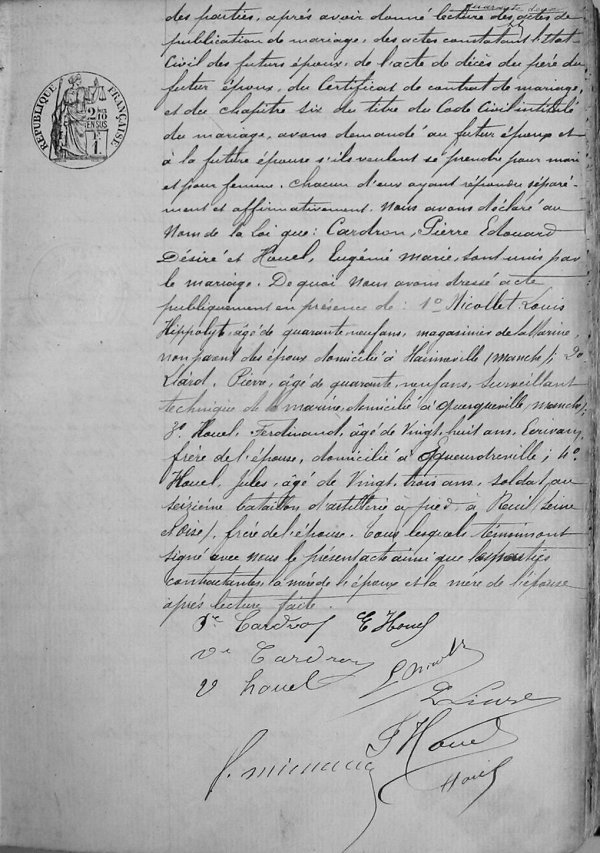 des parties, après avoir donné lecture des actes de
publication de mariage, des actes constatant l'état
Civil des futurs époux, de l'acte de dicès du père du
futur époux, du Certificat de contrat de mariage,
et du chapitre six du titre du Code Civil intitulé
du mariage, avons demandé au futur époux et
à la future épouse s'ils veulent se prendre pour mari
et pour femme, chacun d'eux ayant répondu séparé-
ment et affirmativement. Nous avons déclaré au
Nom de la Loi que: Cardron, Pierre Edouard
Désiré et Houel, Eugénie Marie, sont unis par
le mariage. De quoi Nous avons dressé acte
publiquement en présence de: 1º Nicollet Louis
Hippolyt âgé de quarante neuf ans, magasinier de la Marine
non parent des époux domicilié à Hainneville (manche); 2º
Liard, Pierre, âgé de quarante neuf ans, Surveillant
technique de la marine, domicilié à Querqueville, manche;
3º Houel, Ferdinand, âgé de Vingt huit ans, Ecrivain,
frère de l'épouse, domicilié à Equeurdreville; 4º
Houel, Jules, âgé de Vingt trois ans, soldat au
seizième bataillon d'artillerie à pied, à Rueil, Seine
et Oise), frère de l'épouse. Tous lesquels témoins ont
signé avec nous le présent acte ainsi que les parties
Contractantes, la mère de l'époux et la mère de l'épouse
après lecture faite.
RÉPUBLIQUE FRANÇAISE
Cardron E Houel
Ve Cardron
V houel
F Houel
Houel